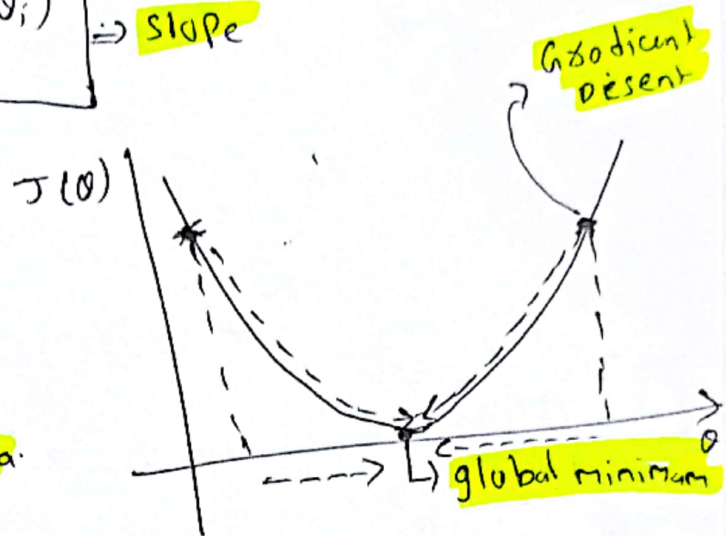 i)
⇒ Slope
Gradicent
Desent
J(θ)
a.
θ
global minimam